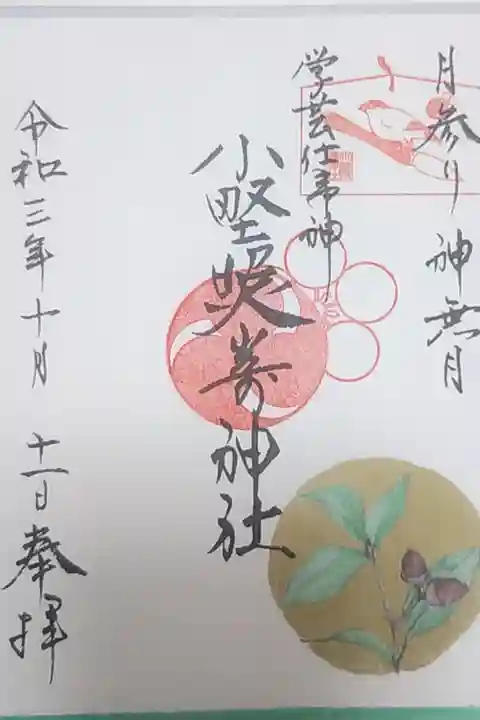 月参り 神無月
学芸仕事神
小野照崎神社
令和三年十月 十一日奉拝